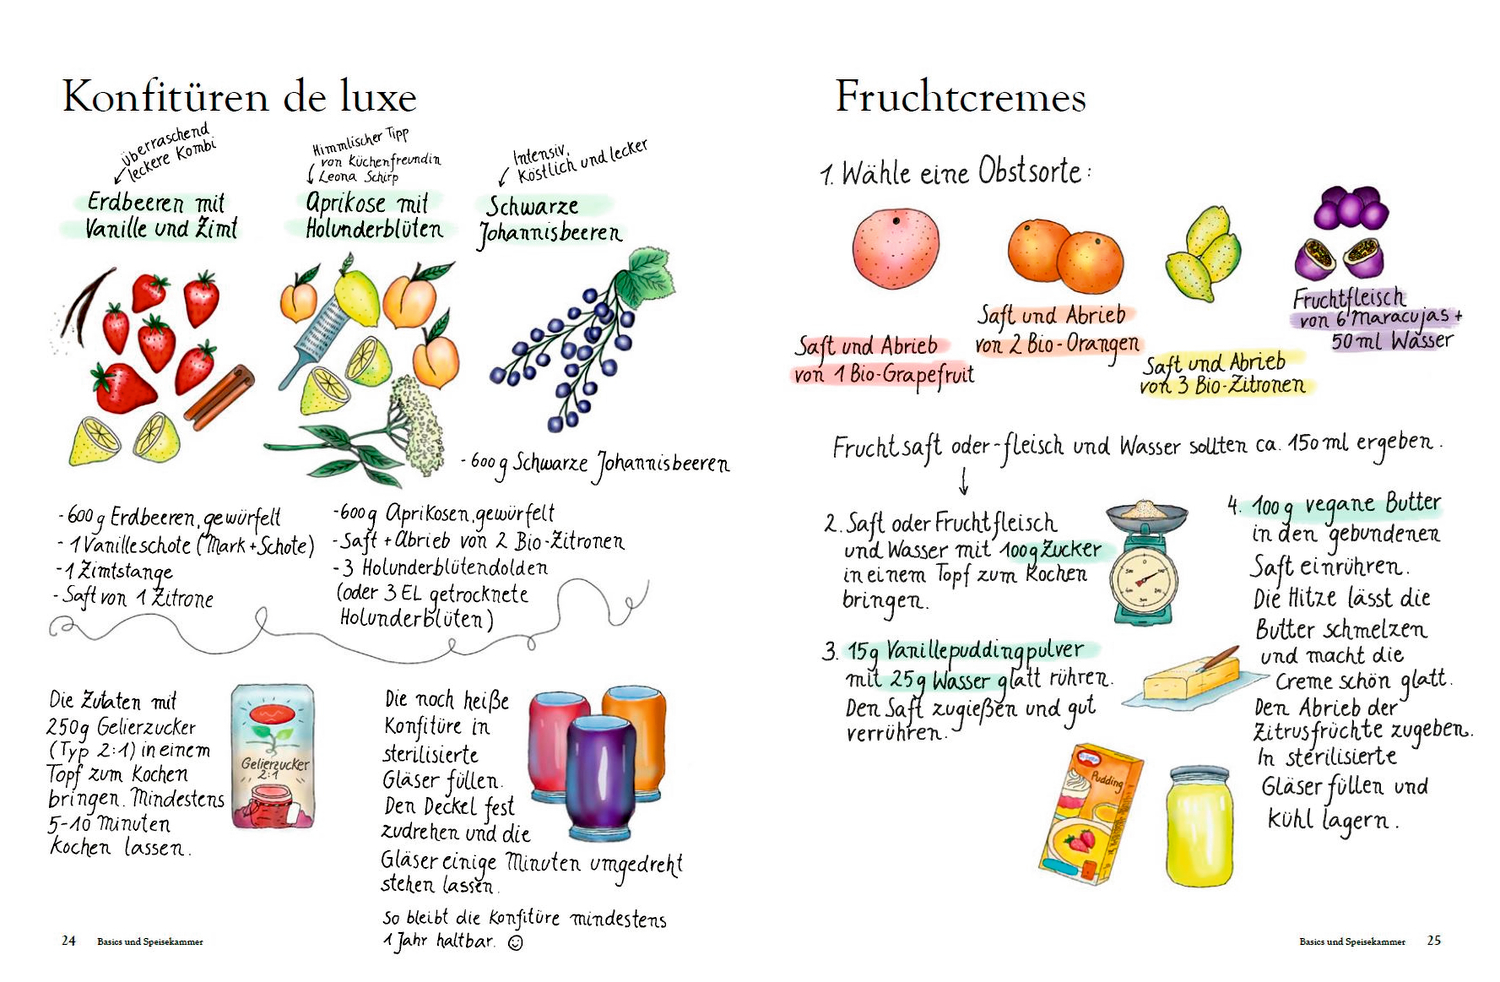 Konfitüren de luxe
überraschend
leckere Kombi
Erdbeeren mit
Vanille und Zimt
Himmlischer Tipp
von Küchenfreundin
Leona Schirp
Aprikose mit
Holunderblüten
Intensiv,
Köstlich und lecker
Schwarze
Johannisbeeren
- 600 g Schwarze Johannisbeeren
- 600 g Erdbeeren, gewürfelt
- 1 Vanilleschote (Mark + Schote)
- 1 Zimtstange
- Saft von 1 Zitrone
- 600 g Aprikosen, gewürfelt
- Saft + Abrieb von 2 Bio-Zitronen
- 3 Holunderblütendolden
(oder 3 EL getrocknete
Holunderblüten)
Die Zutaten mit
250g Gelierzucker
(Typ 2:1) in einem
Topf zum Kochen
bringen. Mindestens
5-10 Minuten
kochen lassen.
Gelierzucker
2:1
Die noch heiße
Konfitüre in
sterilisierte
Gläser füllen.
Den Deckel fest
zudrehen und die
Gläser einige Minuten umgedreht
stehen lassen.
So bleibt die Konfitüre mindestens
1 Jahr haltbar. ☺
24 Basics und Speisekammer
Fruchtcremes
1. Wähle eine Obstsorte:
Saft und Abrieb
von 1 Bio-Grapefruit
Saft und Abrieb
von 2 Bio-Orangen
Saft und Abrieb
von 3 Bio-Zitronen
Fruchtfleisch
von 6 Maracujas +
50 ml Wasser
Fruchtsaft oder -fleisch und Wasser sollten ca. 150 ml ergeben.
2. Saft oder Fruchtfleisch
und Wasser mit 100g Zucker
in einem Topf zum Kochen
bringen.
3. 15g Vanillepuddingpulver
mit 25g Wasser glatt rühren.
Den Saft zugießen und gut
verrühren.
Pudding
4. 100 g vegane Butter
in den gebundenen
Saft einrühren.
Die Hitze lässt die
Butter schmelzen
und macht die
Creme schön glatt.
Den Abrieb der
Zitrusfrüchte zugeben.
In sterilisierte
Gläser füllen und
kühl lagern.
Basics und Speisekammer 25